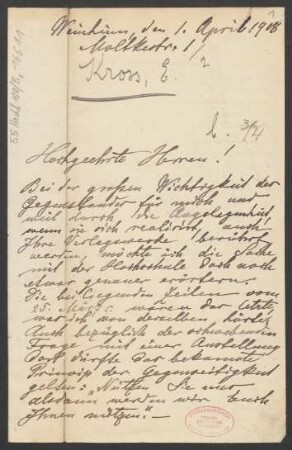 Weinheim, den 1. April 1908
Moltkestr. 1/2
Kross, E.
b. 3/4
Hochgeehrte Herren!
Bei der großen Wichtigkeit der
Gegenstandes für mich und
weil durch die Angelegenheit,
wenn sie sich realisirt, auch
Ihre Verlagswerke berührt
werden, möchte ich die Sache
mit der Hochschule doch noch
etwas genauer erörtern.
Die beiliegenden Zeilen vom
25. März c. wären das letzte,
was ich von derselben hörte.
Auch bezüglich der schwebenden
Frage mit einer Ausstellung
dort dürfte das bekannte
Prinzip der Gegenseitigkeit
gelten: "Nützen Sie uns,
alsdann werden wir auch
Ihnen nützen!"—